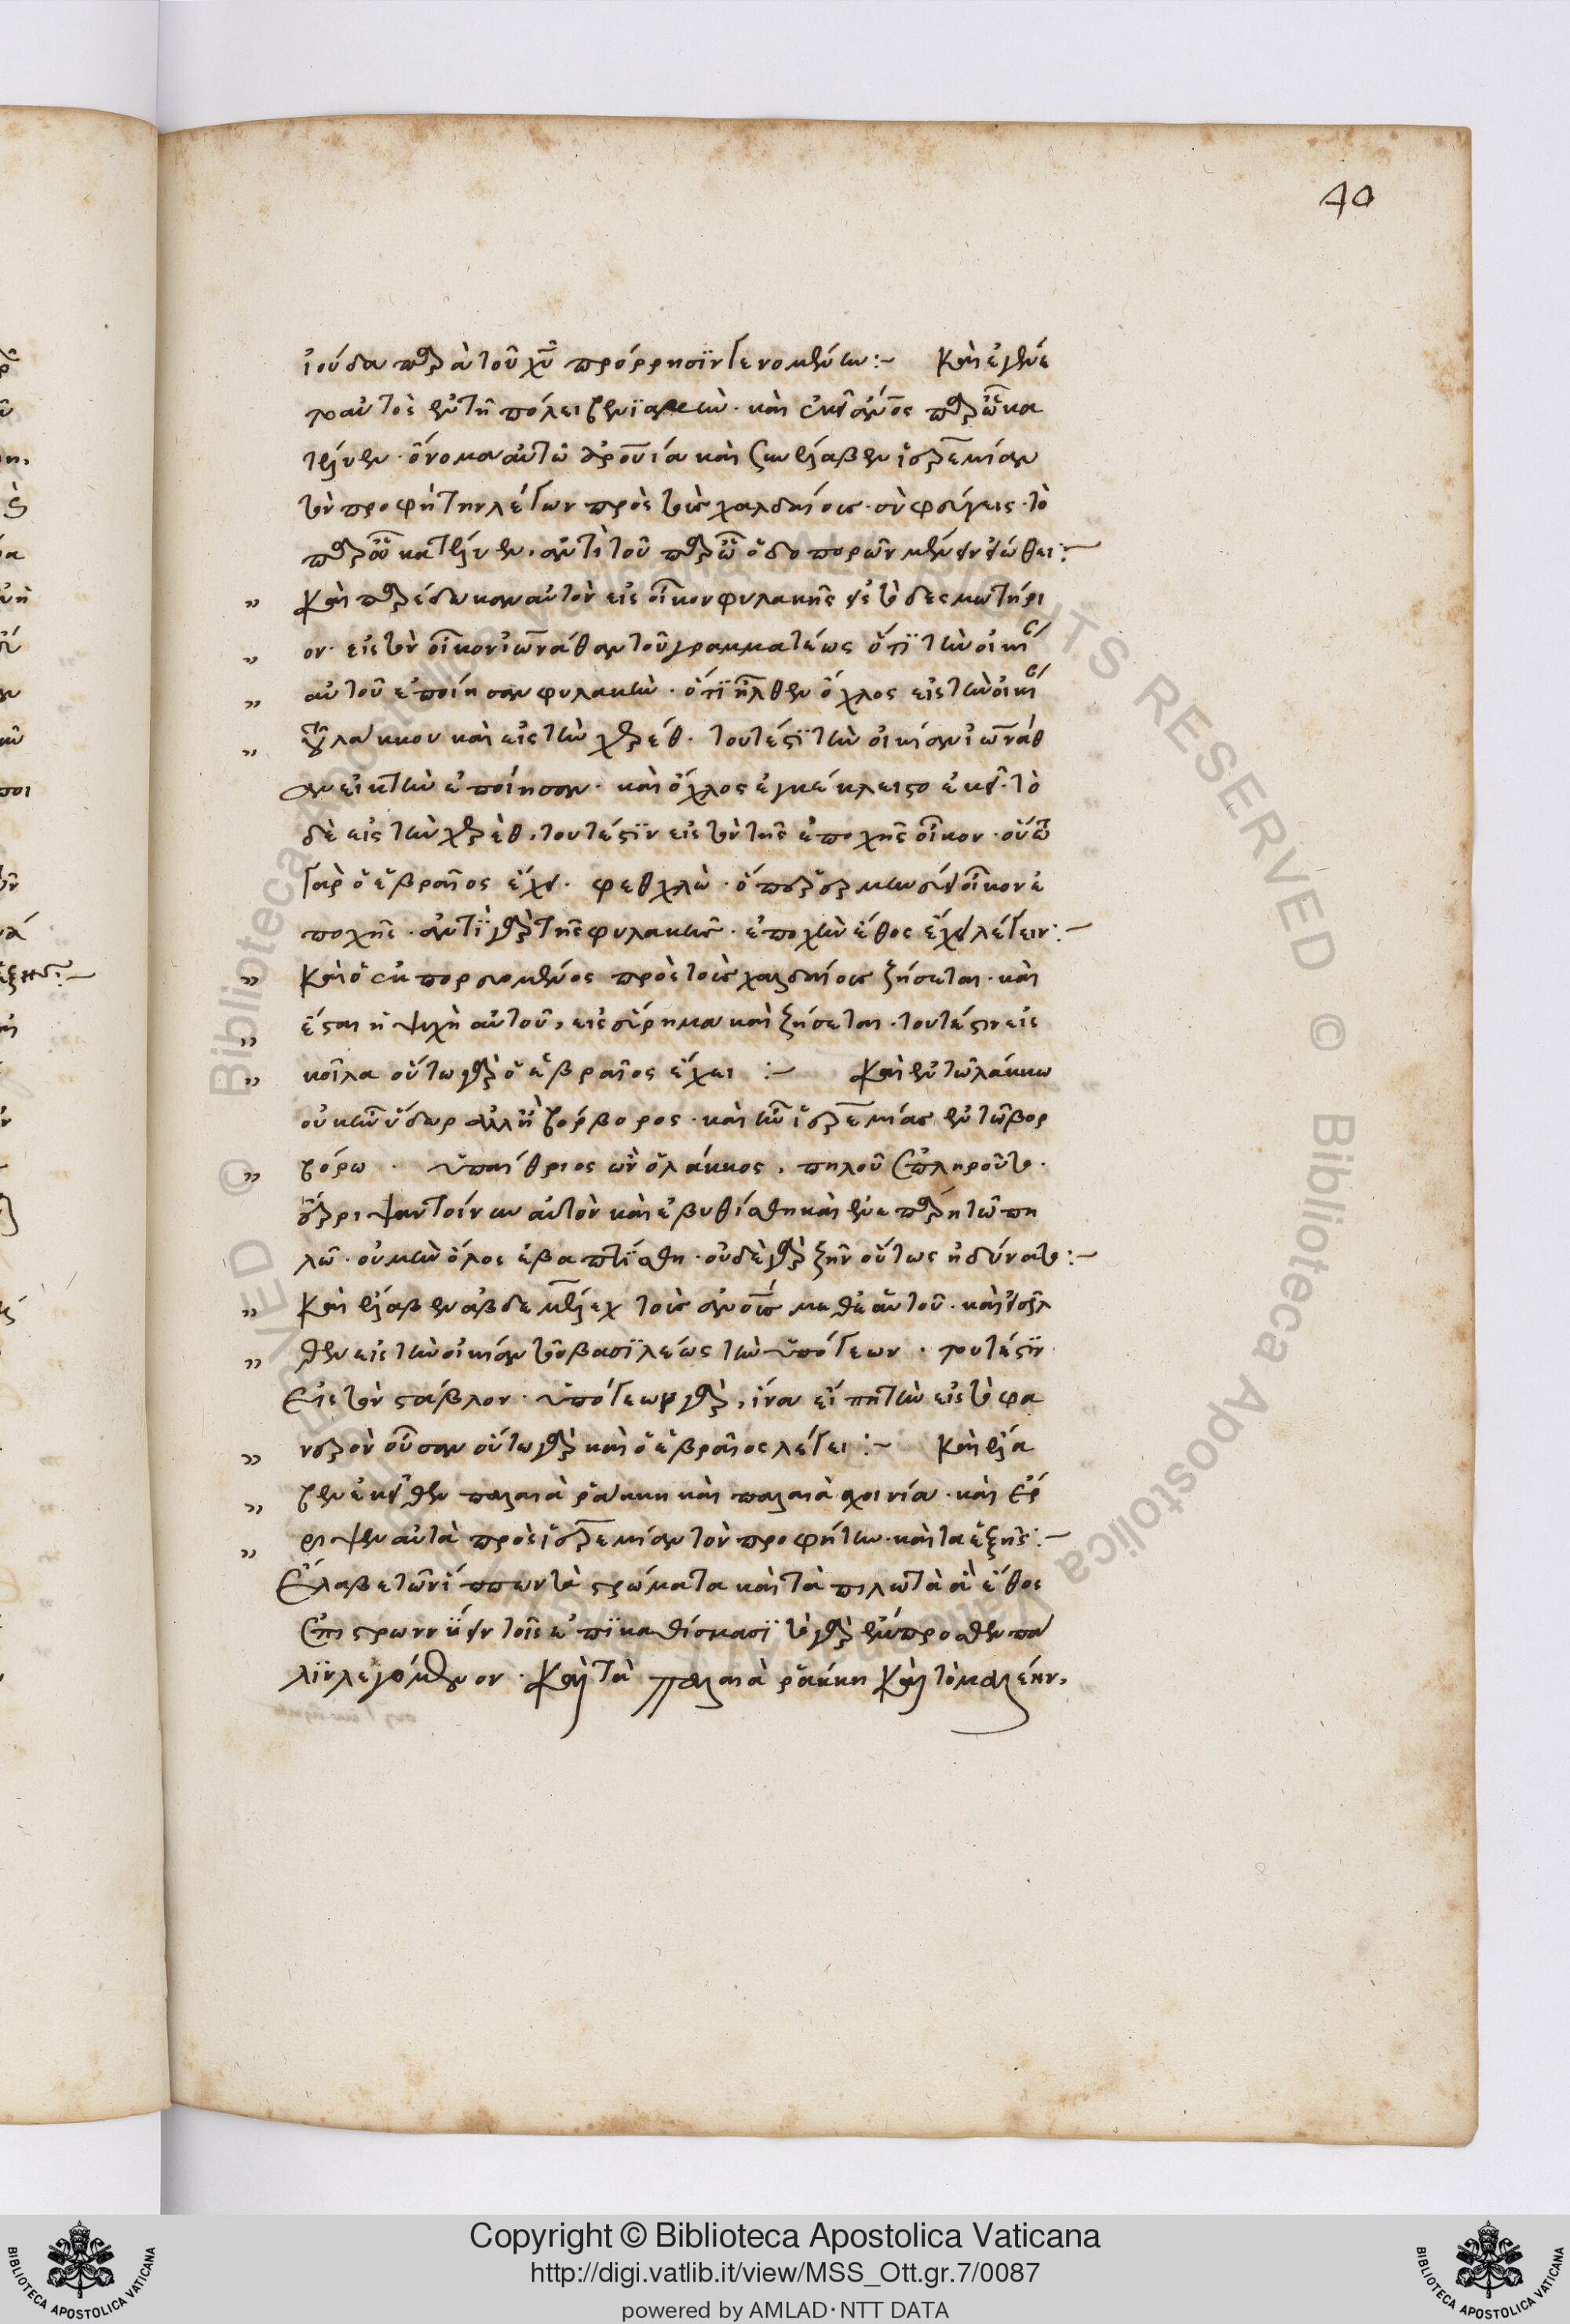 40
ἰούδα παρὰ τοῦ χυ̅ πρόρρησιν γενομένην :~ Καὶ ἐγένε
το αὐτὸς ἐν τῆ πόλει βενϊαμὴν· καὶ ἐκεῖ ἄνος παρ' ὧ κα
τέλυεν· ὄνομα αὐτῶ σαρουία καὶ συνέλαβεν ἱερεμίαν
τὸν προφήτην λέγων πρὸς τοὺς χαλδαίους σὺ φεύγεις· τὸ
παρ' ὧ κατέλυεν, ἀντὶ τοῦ παρ' ὧ ὁδοπορῶν μένειν εἰώθει :~
Καὶ παρέδωκαν αὐτὸν εἰς οἶκον φυλακῆς εἰς τὸ δεσμωτήρι
ον· εἰς τὸν οἶκον ἰωνάθαν τοῦ γραμματέως ὅτϊ τὴν οἰκί
αὐτοῦ ἐποίησαν φυλακὴν· ὅτϊ ἦλθεν ὄχλος εἰς τὴν οἰκί
τοῦ λάκκου καὶ εἰς τὴν χερέθ· τουτέστϊ τὴν οἰκίαν ἰωνάθ
αν εἰκτὴν ἐποίησαν· καὶ ὄχλος ἐγκέκλειστο ἐκεῖ· τὸ
δὲ εἰς τὴν χερὲθ, τουτέστϊν εἰς τὸν τῆς ἐποχῆς οἶκον· οὕτω
γὰρ ὁ ἑβραῖος ἔχει· φεθχλὼ· ὅπερ ἑρμηνεύει οἶκον ἐ
ποχῆς· ἀντὶ γὰρ τῆς φυλακῆς· ἐποχὴν ἔθος ἔχει λέγειν :~
Καὶ ὁ ἐκπορευομένος πρὸς τοὺς χαλδαίους ζήσεται· καὶ
ἔσται ἡ ψυχὴ αὐτοῦ, εἰς εὕρημα καὶ ζήσεται· τουτέστιν εἰς
κοῖλα οὕτω γὰρ ὁ ἑβραῖος ἔχει :~ Καὶ ἐν τῶ λάκκω
οὐκ ἦν ὕδωρ ἀλλ' ἢ βόρβορος· καὶ ἦν ἱερεμίας ἐν τῶ βορ
βόρω· ὑπαίθριος ὢν ὁ λάκκος, πηλοῦ ἐπληροῦτο·
ἔρριψαν τοίνυν αὐτὸν καὶ ἐβυθίσθη καὶ ἐν τῶ πη
λῶ· οὐ μὴν ὅλος ἐβαπτϊσθη· οὐδὲ γὰρ ζῆν οὕτως ἠδύνατο :~
Καὶ ἔλαβεν ἀβδεμέλεχ τοὺς ἀνους μεθ' ἑαυτοῦ· καὶ εἰσῆλ
θεν εἰς τὴν οἰκίαν τοῦ βασϊλέως τὴν ὑπόγεων· τουτέστϊν
Εἰς τὸν στάβλον· ὑπόγεων γὰρ, ἵνα εἴπη τὴν εἰς τὸ φα
νερὸν οὖσαν οὕτω γὰρ καὶ ὁ ἑβραῖος λέγει :~ Καὶ ἔλα
βεν ἐκεῖθεν παλαιὰ ῥάκκη καὶ παλαιὰ σχοινία· καὶ ἔρ
ριψεν αὐτὰ πρὸς ἱερεμίαν τὸν προφήτην· καὶ τὰ ἑξῆς :~
Ἔλαβε τῶν ἵππων τὰ στρώματα καὶ τὰ πιλωτὰ ἃ ἔθος
ἐπιστρωννύειν τοῖς ἐπϊκαθίσμασϊ τὸ γὰρ ἔμπροσθεν πά
λϊν λεγόμενον· Καὶ τὰ παλαιὰ ῥάκκη Καὶ τὸ
Copyright © Biblioteca Apostolica Vaticana
http://digi.vatlib.it/view/MSS_Ott.gr.7/0087
powered by AMLAD·NTT DATA